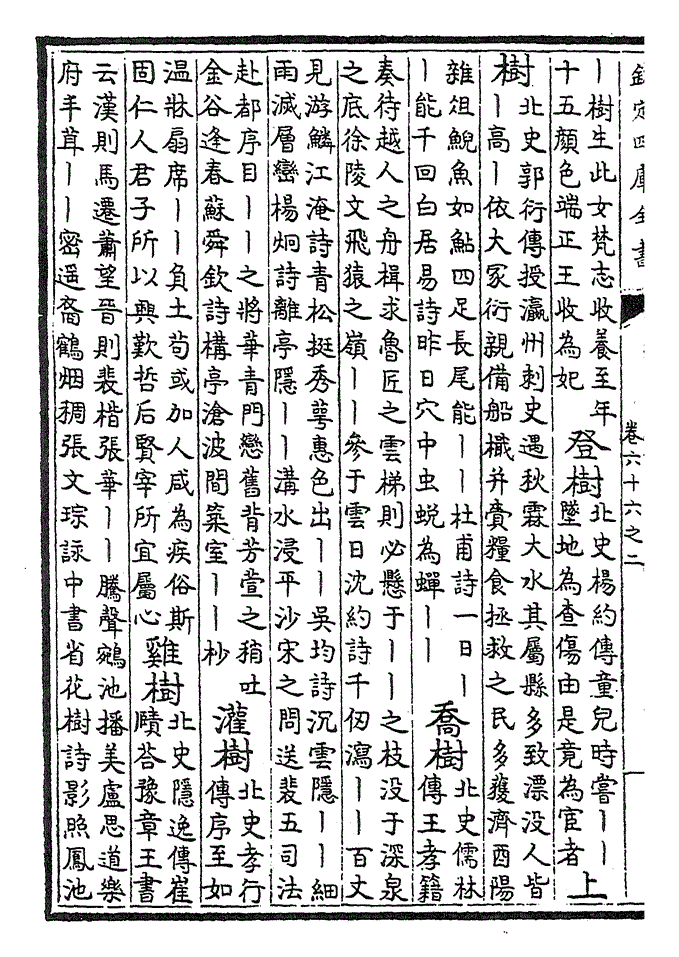 欽定四庫全書
卷六十六之二
｜樹生此女梵志收養至年
十五顏色端正王收為妃
登樹
北史楊約傳童兒時嘗｜｜
墜地為查傷由是竟為宦者
上
樹
北史郭衍傳授瀛州刺史遇秋霖大水其屬縣多致漂没人皆
｜高｜依大冢衍親備船檝并賫糧食拯救之民多獲濟酉陽
雜俎鯢魚如鮎四足長尾能｜｜杜甫詩一日｜
｜能千回白居易詩昨日穴中虫蜕為蟬｜｜
喬樹
北史儒林
傳王孝籍
奏待越人之舟楫求魯匠之雲梯則必懸于｜｜之枝没于深泉
之底徐陵文飛猿之嶺｜｜參于雲日沈約詩千仞瀉｜｜百丈
見游鱗江淹詩青松挺秀萼惠色出｜｜吳均詩沉雲隱｜｜細
雨滅層巒楊炯詩離亭隱｜｜溝水浸平沙宋之問送裴五司法
赴都序目｜｜之將華青門戀舊背芳萱之稍吐
金谷逢春蘇舜欽詩構亭滄波間築室｜｜杪
灌樹
北史孝行
傳序至如
温牀扇席｜｜負土苟或加人咸為疾俗斯
固仁人君子所以興歎哲后賢宰所宜屬心
雞樹
北史隱逸傳崔
賾答豫章王書
云漢則馬遷蕭望晉則裴楷張華｜｜騰聲鵷池播美盧思道樂
府丰茸｜｜密遥裔鶴烟稠張文琮詠中書省花樹詩影照鳳池